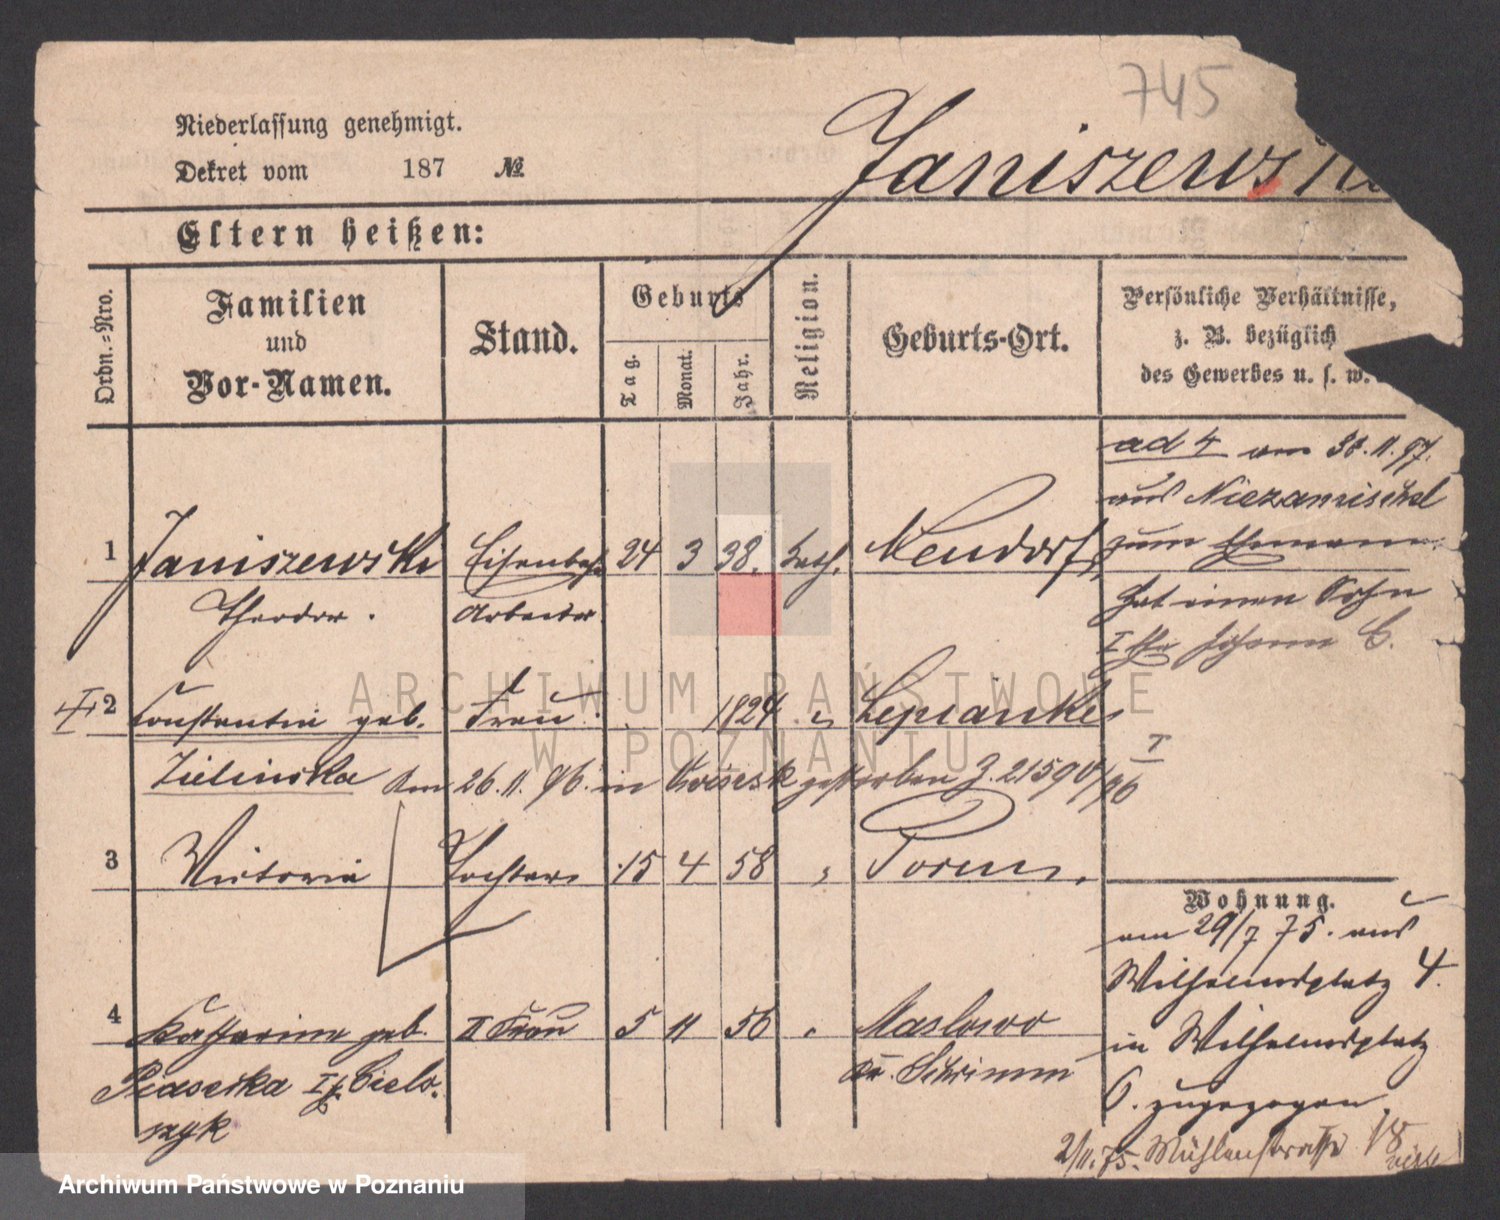 745
Niederlassung genehmigt.
Dekret vom 187 №
Janiszewski
Eltern heißen:
Ordn.-Nro.
Familien
und
Vor-Namen.
Stand.
Geburts
Tag.
Monat.
Jahr.
Religion.
Geburts-Ort.
Persönliche Verhältnisse,
z. B. bezüglich
des Gewerbes u. s. w.
ad 4 am 30.11.97.
aus Niezamischel
zum Ehemann.
1 Janiszewski Eisenbahn 24 3 38. kath. Neudorf
Theodor. Arbeiter
hat einen Sohn
I Ehe Johann C.
2 Constantia geb. Frau 1824 " Lepianke
Zielinska am 26.11.96. in gestorben J. 21590/96 I
3 Victoria Tochter 15 4 58 " Posen.
Wohnung.
am 29/7 75. aus
Wilhelmsplatz 4.
4 Katharina geb. II Frau 5 11 56 " Maslowo
in Wilhelmsplatz
Piasecka I f. Ciels- Kr. Schrimm
6. zugezogen
szyk
2/11.75. Mühlenstrasse
ARCHIWUM PAŃSTWOWE
W POZNANIU
Archiwum Państwowe w Poznaniu